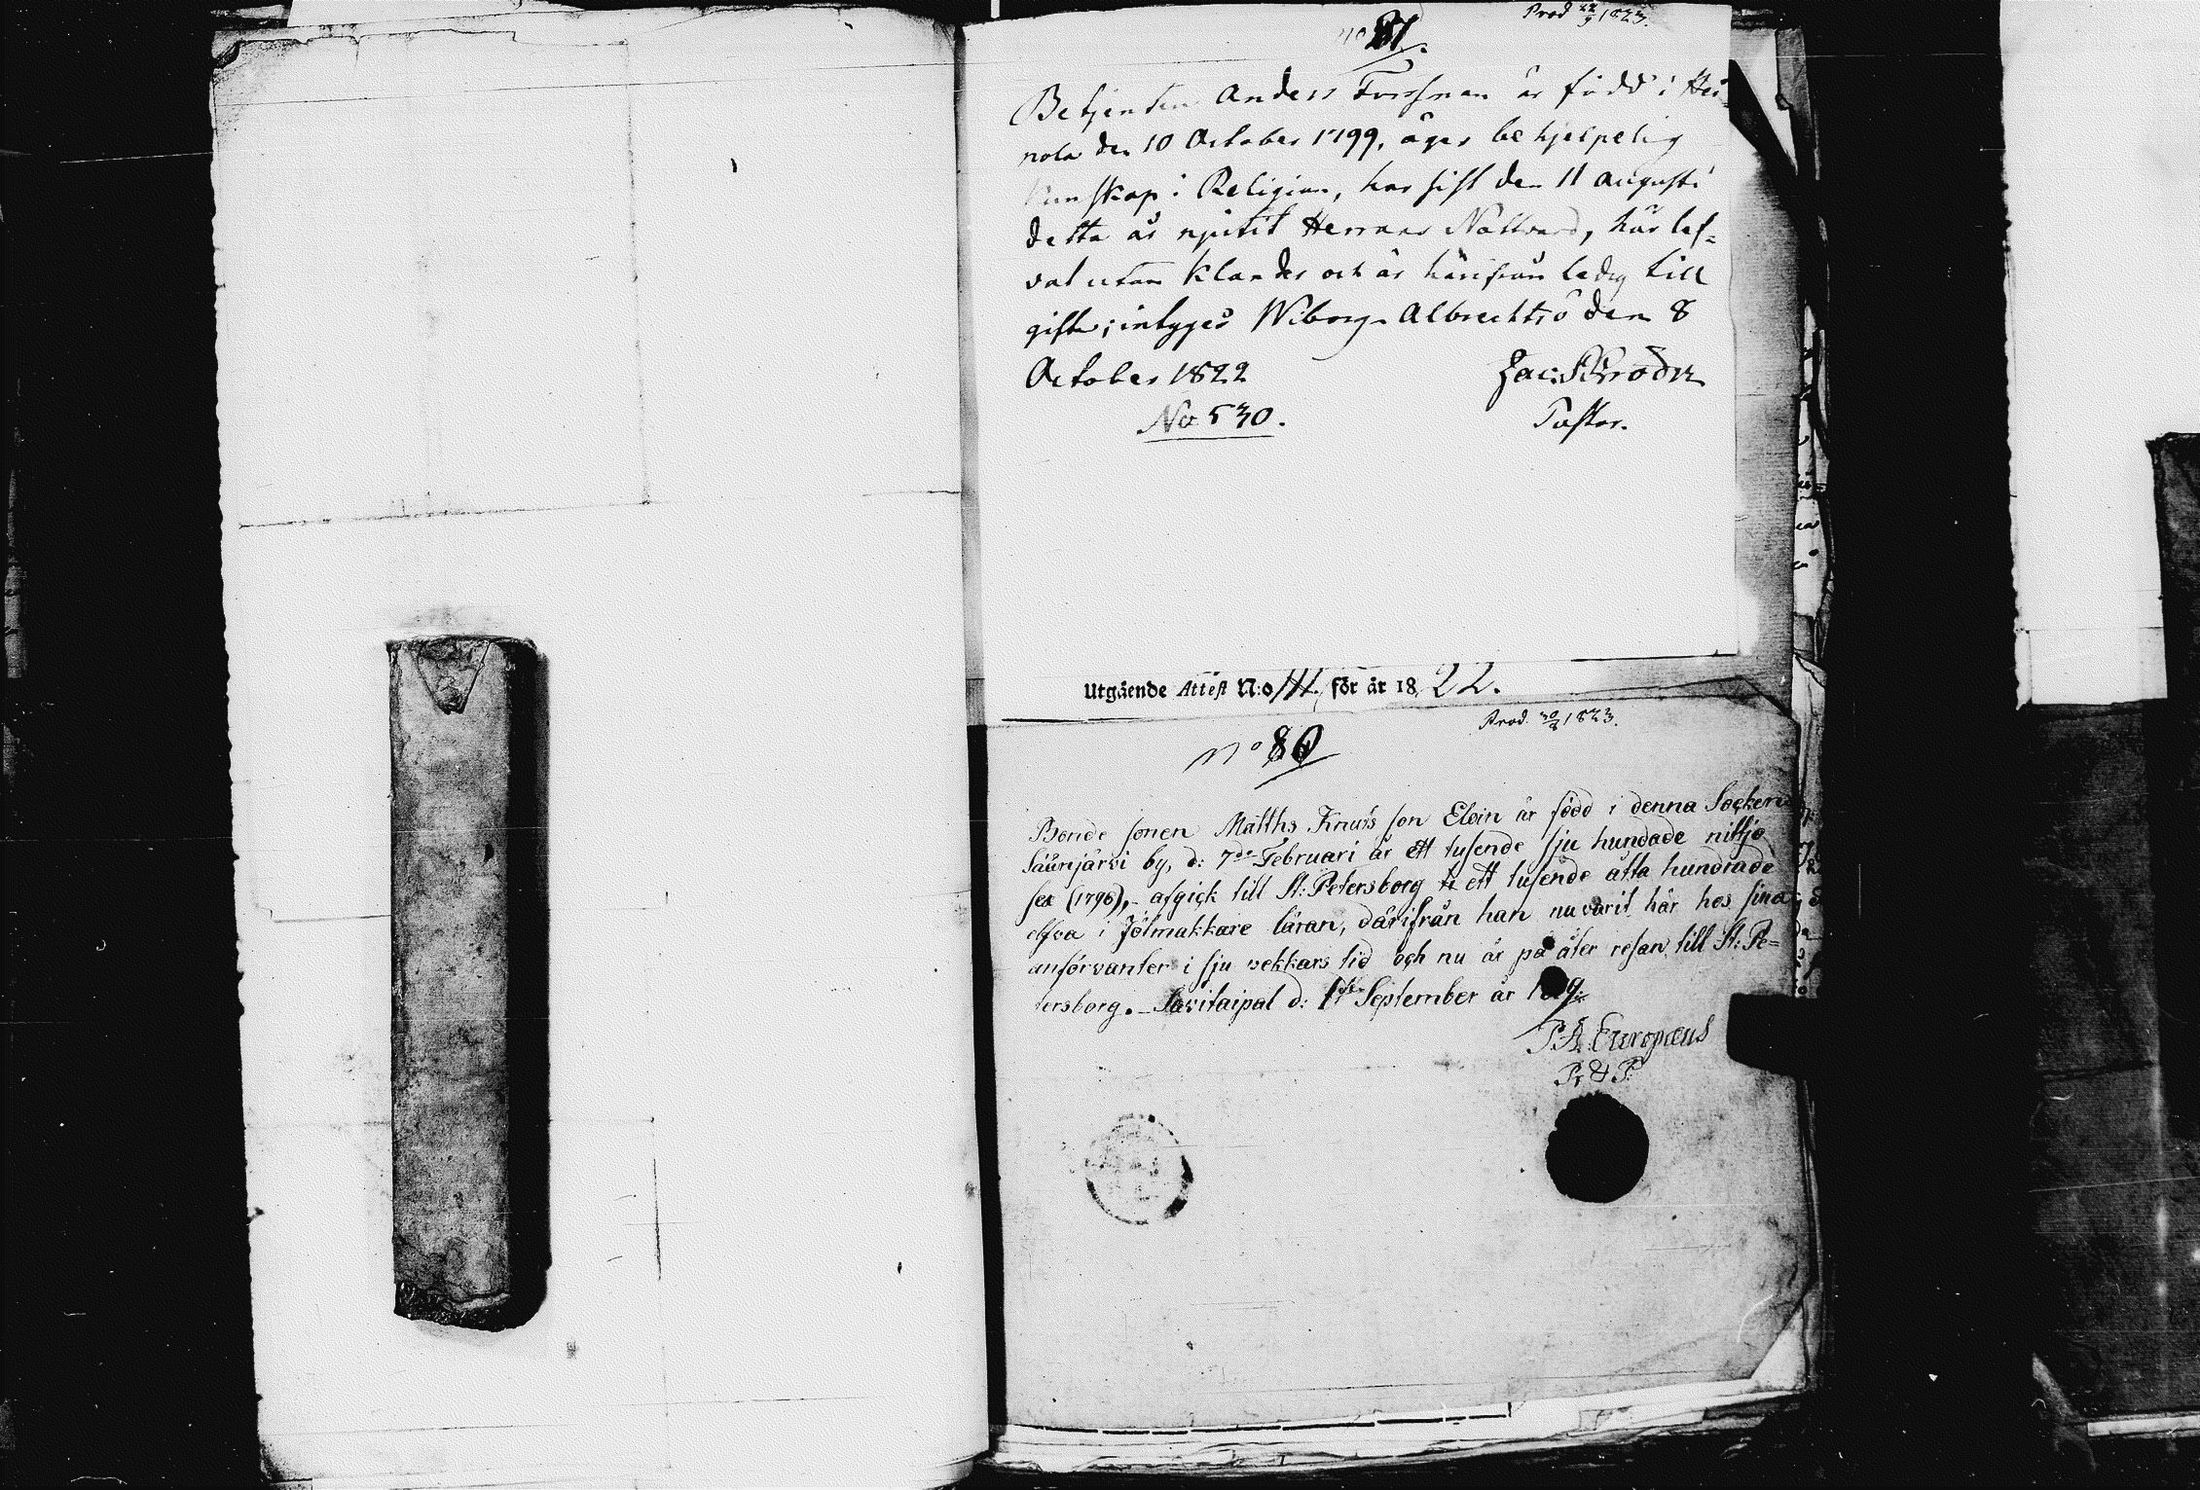 no 81.
Prod 22/9 1823.
Betjenten Anders Forssman är född i Hei=
nola den 10 October 1799, äger behjelpelig
kunskap i Religion, har sist den 11 augusti
detta år njutit Herrans Nattvard, här lef=
vat utan klander och är härifrån ledig till
gifte; intygas Wiborg Albrechtsö den 8
October 1822
Jac: Schröder
No 530.
Pastor.
Utgående Attest N:o 111. för år 1822.
Prod. 30/9 1823.
no 80
Bonde sonen Matths Knuts son Eloin är född i denna Socken
Säänjärvi by, d: 7de Februari år ett tusende sju hundade nittjo
sex (1796), afgick till St: Petersborg ett tusende åtta hundrade
elfva i läran, därifrån han nu varit här hos sina
anförvanter i sju vekkars tid och nu är på åter resan till St: Pe=
tersborg. Savitaipal d: 1 September år 1819.
P. A. Europæus
Pr & P.